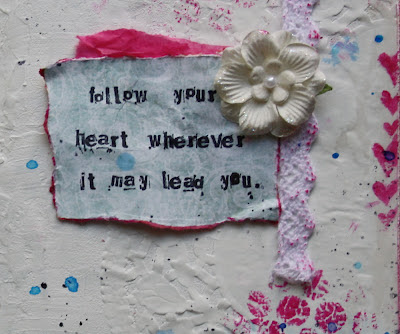 follow your
heart wherever
it may lead you.